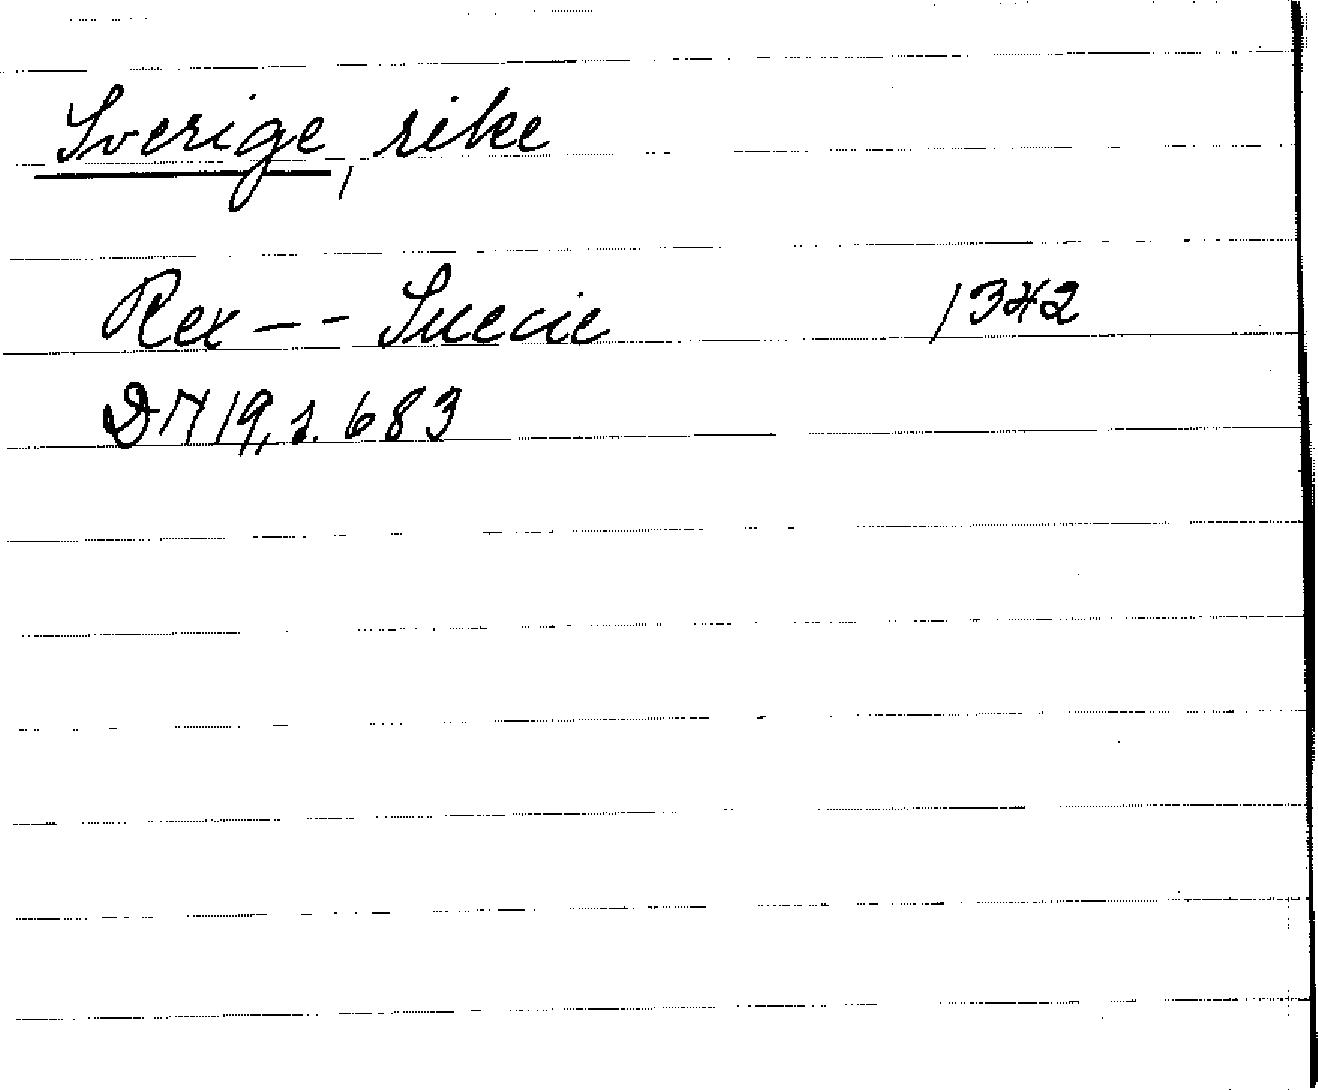 Sverige, rike
Rex - - Suecie 1342
DN 19, s. 683